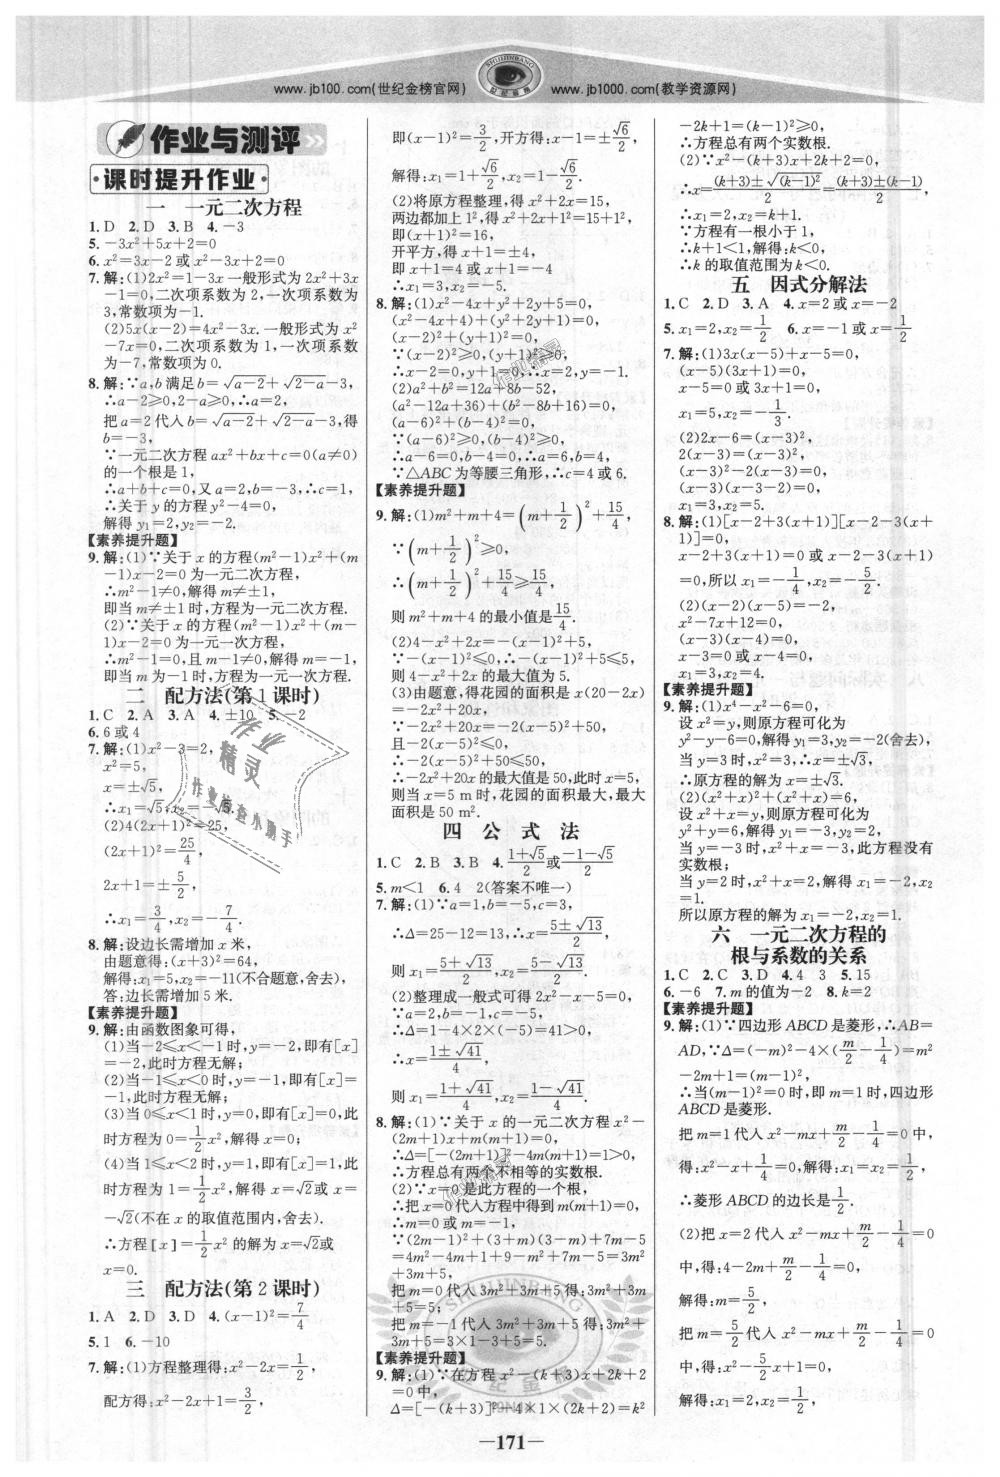 SHIJIJINBANG
世纪金榜
www.jb100.com(世纪金榜官网)
www.jb1000.com(教学资源网)
作业与测评
课时提升作业
一 一元二次方程
1. D 2. D 3. B 4. －3
5. －3x²+5x+2=0
6. x²=3x－2或x²－3x+2=0
7. 解:(1)2x²=1－3x一般形式为2x²+3x
－1=0,二次项系数为2,一次项系数为
3,常数项为－1.
(2)5x(x－2)=4x²－3x.一般形式为x²
－7x=0,二次项系数为1,一次项系数
为－7,常数项为0.
8. 解:∵a,b满足b=√(a－2)+√(2－a)－3,
∴a－2≥0,2－a≥0,∴a=2,
把a=2代入b=√(a－2)+√(2－a)－3,得
b=－3,
∵一元二次方程ax²+bx+c=0(a≠0)
的一个根是1,
∴a+b+c=0,又a=2,b=－3,∴c=1,
∴关于y的方程y²－4=0,
解得y₁=2,y₂=－2.
【素养提升题】
9. 解:(1)∵关于x的方程(m²－1)x²+(m
－1)x－2=0为一元二次方程,
∴m²－1≠0,解得m≠±1,
即当m≠±1时,方程为一元二次方程.
(2)∵关于x的方程(m²－1)x²+(m－
1)x－2=0为一元一次方程,
∴m²－1=0,且m－1≠0,解得m=－1,
即当m为－1时,方程为一元一次方程.
二 配方法(第1课时)
1. C 2. A 3. A 4. ±10 5. －2
6. 6或4
7. 解:(1)x²－3=2,
x²=5,
x=±√5,
∴x₁=√5,x₂=－√5.
(2)4(2x+1)²=25,
(2x+1)²=25/4,
2x+1=±5/2,
∴x₁=3/4,x₂=－7/4.
8. 解:设边长需增加x米,
由题意得:(x+3)²=64,
解得:x₁=5,x₂=－11(不合题意,舍去),
答:边长需增加5米.
【素养提升题】
9. 解:由函数图象可得,
(1)当－2≤x<－1时,y=－2,即有[x]
=－2,此时方程无解;
(2)当－1≤x<0时,y=－1,即有[x]=
－1,此时方程无解;
(3)当0≤x<1时,y=0,即有[x]=0,此
时方程为0=1/2x²,解得x=0;
(4)当1≤x<2时,y=1,即有[x]=1,此
时方程为1=1/2x²,解得x=√2或x=
－√2(不在x的取值范围内,舍去).
∴方程[x]=1/2x²的解为x=√2或
x=0.
三 配方法(第2课时)
1. A 2. D 3. D 4. (x－1)²=7/4
5. 1 6. －10
7. 解:(1)方程整理得:x²－2x=1/2,
配方得:x²－2x+1=3/2,
即(x－1)²=3/2,开方得:x－1=±√6/2,
解得:x₁=1+√6/2,x₂=1－√6/2.
(2)将原方程整理,得x²+2x=15,
两边都加上1²,得x²+2x+1²=15+1²,
即(x+1)²=16,
开平方,得x+1=±4,
即x+1=4或x+1=－4,
∴x₁=3,x₂=－5.
8. 解:(1)x²－4x+y²+2y+5=0,
(x²－4x+4)+(y²+2y+1)=0,
(x－2)²+(y+1)²=0,
∵(x－2)²≥0,(y+1)²≥0,
∴x－2=0,y+1=0,∴x=2,y=－1.
(2)a²+b²=12a+8b－52,
(a²－12a+36)+(b²－8b+16)=0,
(a－6)²+(b－4)²=0,
∵(a－6)²≥0,(b－4)²≥0,
∴a－6=0,b－4=0,∴a=6,b=4,
∵△ABC为等腰三角形,∴c=4或6.
【素养提升题】
9. 解:(1)m²+m+4=(m+1/2)²+15/4,
∵(m+1/2)²≥0,
∴(m+1/2)²+15/4≥15/4,
则m²+m+4的最小值是15/4.
(2)4－x²+2x=－(x－1)²+5,
∵－(x－1)²≤0,∴－(x－1)²+5≤5,
则4－x²+2x的最大值为5.
(3)由题意,得花园的面积是x(20－2x)
=－2x²+20x,
∵－2x²+20x=－2(x－5)²+50,
且－2(x－5)²≤0,
∴－2(x－5)²+50≤50,
∴－2x²+20x的最大值是50,此时x=5,
则当x=5 m时,花园的面积最大,最大
面积是50 m².
四 公式法
1. C 2. B 3. B 4. (1+√5)/2或(－1－√5)/2
5. m<1 6. 4 2(答案不唯一)
7. 解:(1)∵a=1,b=－5,c=3,
∴Δ=25－12=13,∴x=(5±√13)/2,
则x₁=(5+√13)/2,x₂=(5－√13)/2.
(2)整理成一般式可得2x²－x－5=0,
∵a=2,b=－1,c=－5,
∴Δ=1－4×2×(－5)=41>0,
∴x=(1±√41)/4,
则x₁=(1+√41)/4,x₂=(1－√41)/4.
8. 解:(1)∵关于x的一元二次方程x²－
(2m+1)x+m(m+1)=0,
∴Δ=[－(2m+1)]²－4m(m+1)=1>0,
∴方程总有两个不相等的实数根.
(2)∵x=0是此方程的一个根,
∴把x=0代入方程中得到m(m+1)=0,
∴m=0或m=－1,
∵(2m－1)²+(3+m)(3－m)+7m－5
=4m²－4m+1+9－m²+7m－5=3m²
+3m+5,
把m=0代入3m²+3m+5得:3m²+3m
+5=5;
把m=－1代入3m²+3m+5得:3m²+
3m+5=3×1－3+5=5.
【素养提升题】
9. 解:(1)∵在方程x²－(k+3)x+2k+2
=0中,
Δ=[－(k+3)]²－4×1×(2k+2)=k²
－2k+1=(k－1)²≥0,
∴方程总有两个实数根.
(2)∵x²－(k+3)x+2k+2=0,
∴x=((k+3)±√(k－1)²)/2=((k+3)±(k－1))/2,
∴x₁=2,x₂=k+1.
∵方程有一根小于1,
∴k+1<1,解得:k<0,
∴k的取值范围为k<0.
五 因式分解法
1. C 2. D 3. A 4. x=2或x=－2
5. x₁=2,x₂=1/2 6. x=－1或x=1/2
7. 解:(1)3x(x－5)+x－5=0,
(x－5)(3x+1)=0,
x－5=0或3x+1=0,
x₁=5,x₂=－1/3.
(2)2x－6=(x－3)²,
2(x－3)=(x－3)²,
(x－3)²－2(x－3)=0,
(x－3)(x－3－2)=0,
x₁=3,x₂=5.
8. 解:(1)[x－2+3(x+1)][x－2－3(x+
1)]=0,
x－2+3(x+1)=0或x－2－3(x+1)
=0,所以x₁=－1/4,x₂=－5/2.
(2)(x－2)(x－5)=－2,
x²－7x+12=0,
(x－3)(x－4)=0,
x－3=0或x－4=0,
x₁=3,x₂=4.
【素养提升题】
9. 解:(1)x⁴－x²－6=0,
设x²=y,则原方程可化为
y²－y－6=0,解得y₁=3,y₂=－2(舍去),
当y=3时,x²=3,∴x=±√3,
∴原方程的解为x=±√3.
(2)(x²+x)²+(x²+x)=6,
设x²+x=y,则原方程可化为
y²+y=6,解得y₁=－3,y₂=2,
当y=－3时,x²+x=－3,此方程没有
实数根;
当y=2时,x²+x=2,解得x₁=－2,x₂
=1.
所以原方程的解为x₁=－2,x₂=1.
六 一元二次方程的
根与系数的关系
1. C 2. C 3. D 4. 4 3 5. 15
6. －6 7. m的值为－2 8. k=2
【素养提升题】
9. 解:(1)∵四边形ABCD是菱形,∴AB=
AD,∵Δ=(－m)²－4×(m/2－1/4)=m²
－2m+1=(m－1)²,
∴当(m－1)²=0时,即m=1时,四边形
ABCD是菱形.
把m=1代入x²－mx+m/2－1/4=0中,
得:x²－x+1/4=0,解得:x₁=x₂=1/2,
∴菱形ABCD的边长是1/2.
(2)把x=2代入x²－mx+m/2－1/4=0
中,得:4－2m+m/2－1/4=0,
解得:m=5/2,
把m=5/2代入x²－mx+m/2－1/4=0
中,得:x²－5/2x+1=0,
解得:x₁=2,x₂=1/2,
作业
精灵
作业检查小助手
SHIJIJINBANG
世纪金榜
—171—